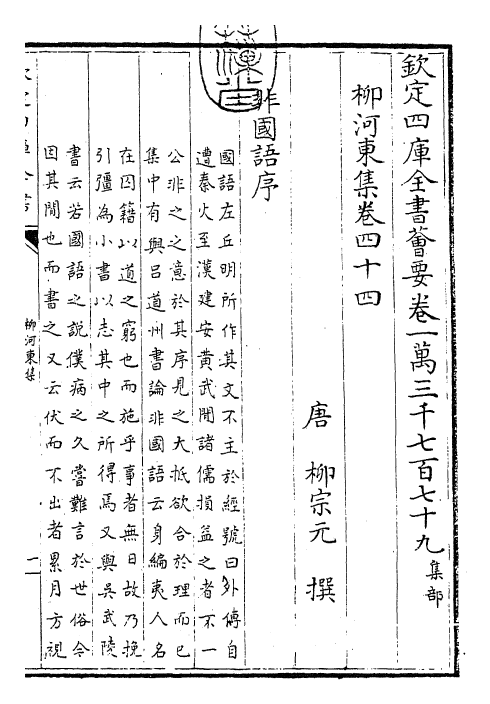 欽定四庫全書薈要卷一萬三千七百七十九 集部
柳河東集卷四十四
唐 柳宗元 撰
非國語序
國語左丘明所作其文不主於經號曰外傳自
遭秦火至漢建安黄武間諸儒損益之者不一
公非之之意於其序見之大抵欲合於理而已
集中有與呂道州書論非國語云身編夷人名
在囚籍以道之窮也而施乎事者無日故乃挽
引彊為小書以志其中之所得焉又與吳武陵
書云若國語之說僕病之久嘗難言於世俗今
因其閒也而書之又云伏而不出者累月方視
柳河東集
一